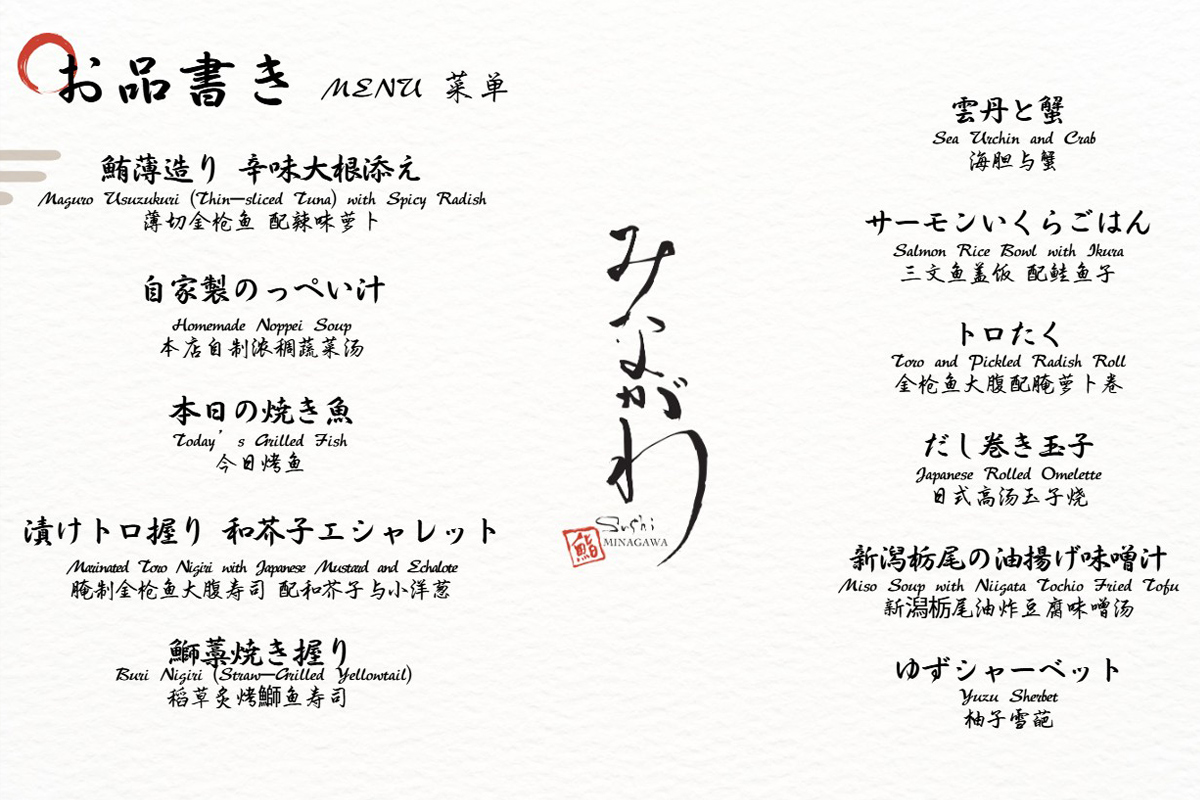 お品書き MENU 菜单
鮪薄造り 辛味大根添え
Maguro Usuzukuri (Thin—sliced Tuna) with Spicy Radish
薄切金枪鱼 配辣味萝卜
自家製のっぺい汁
Homemade Noppei Soup
本店自制浓稠蔬菜汤
本日の焼き魚
Today’s Grilled Fish
今日烤鱼
漬けトロ握り 和芥子エシャレット
Marinated Toro Nigiri with Japanese Mustard and Echalote
腌制金枪鱼大腹寿司 配和芥子与小洋葱
鰤藁焼き握り
Buri Nigiri (Straw—Grilled Yellowtail)
稻草炙烤鰤鱼寿司
みながわ
鮨
Sushi
MINAGAWA
雲丹と蟹
Sea Urchin and Crab
海胆与蟹
サーモンいくらごはん
Salmon Rice Bowl with Ikura
三文鱼盖饭 配鲑鱼子
トロたく
Toro and Pickled Radish Roll
金枪鱼大腹配腌萝卜卷
だし巻き玉子
Japanese Rolled Omelette
日式高汤玉子烧
新潟栃尾の油揚げ味噌汁
Miso Soup with Niigata Tochio Fried Tofu
新潟栃尾油炸豆腐味噌汤
ゆずシャーベット
Yuzu Sherbet
柚子雪葩